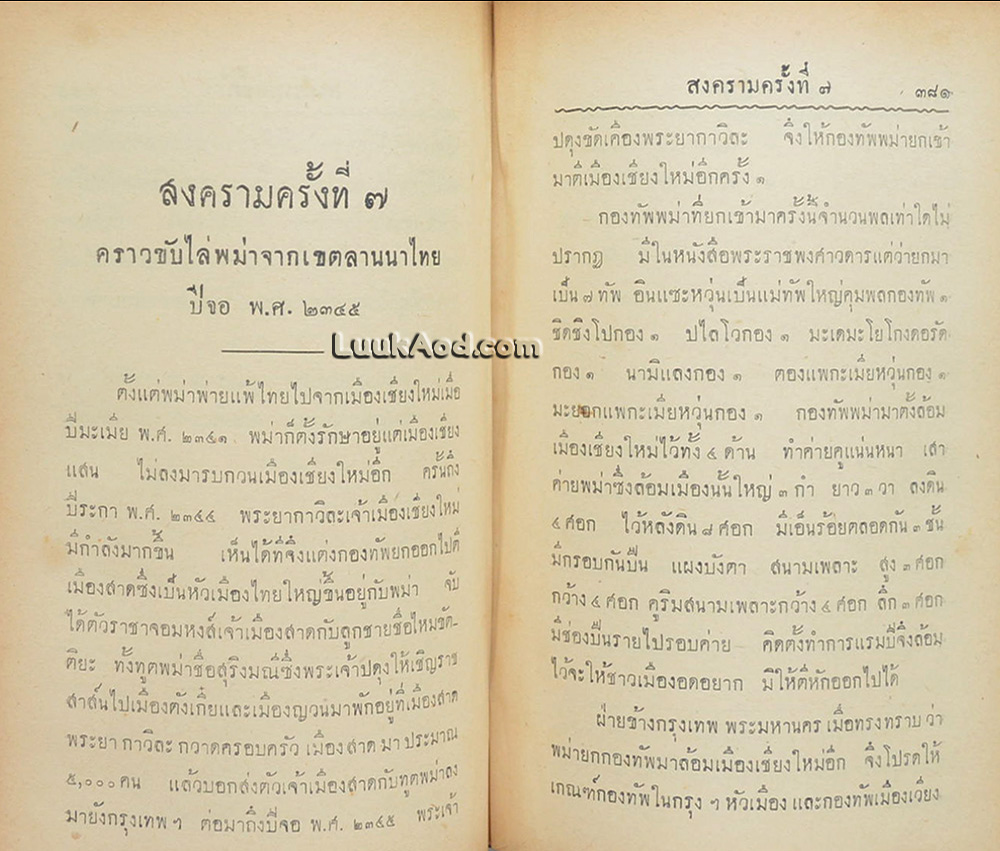 สงครามครั้งที่ ๗
คราวขับไล่พม่าจากเขตลานนาไทย
ปีจอ พ.ศ. ๒๓๔๕
LuukAod.com
ตั้งแต่พม่าพ่ายแพ้ไทยไปจากเมืองเชียงใหม่เมื่อ
ปีมะเมีย พ.ศ. ๒๓๔๑ พม่าก็ตั้งรักษาอยู่แต่เมืองเชียง
แสน ไม่ลงมารบกวนเมืองเชียงใหม่อีก ครั้นถึง
ปีระกา พ.ศ. ๒๓๔๔ พระยากาวิละเจ้าเมืองเชียงใหม่
มีกำลังมากขึ้น เห็นได้ทีจึงแต่งกองทัพยกออกไปตี
เมืองสาดซึ่งเป็นหัวเมืองไทยใหญ่ขึ้นอยู่กับพม่า จับ
ได้ตัวราชาจอมหงส์เจ้าเมืองสาดกับลูกชายชื่อไหมขัต-
ติยะ ทั้งทูตพม่าชื่อสุริงมณีซึ่งพระเจ้าปดุงให้เชิญราช
สาส์นไปเมืองตังเกี๋ยและเมืองญวนมาพักอยู่ที่เมืองสาด
พระยา กาวิละ กวาดครอบครัว เมืองสาด มา ประมาณ
๕,๐๐๐ คน แล้วบอกส่งตัวเจ้าเมืองสาดกับทูตพม่าลง
มายังกรุงเทพ ฯ ต่อมาถึงปีจอ พ.ศ. ๒๓๔๕ พระเจ้า
สงครามครั้งที่ ๗ ๓๘๑
ปดุงขัดเคืองพระยากาวิละ จึงให้กองทัพพม่ายกเข้า
มาตีเมืองเชียงใหม่อีกครั้ง ๑
กองทัพพม่าที่ยกเข้ามาครั้งนี้จำนวนพลเท่าใดไม่
ปรากฏ มีในหนังสือพระราชพงศาวดารแต่ว่ายกมา
เป็น ๗ ทัพ อินแซะหวุ่นเป็นแม่ทัพใหญ่คุมพลกองทัพ ๑
ชิดชิงโปกอง ๑ ปไลโวกอง ๑ มะเดมะโยโกงดอรัด
กอง ๑ นามิแลงกอง ๑ ตองแพกะเมียหวุ่นกอง ๑
มะยอกแพกะเมียหวุ่นกอง ๑ กองทัพพม่ามาตั้งล้อม
เมืองเชียงใหม่ไว้ทั้ง ๔ ด้าน ทำค่ายคูแน่นหนา เสา
ค่ายพม่าซึ่งล้อมเมืองนั้นใหญ่ ๓ กำ ยาว ๓ วา ลงดิน
๔ ศอก ไว้หลังดิน ๘ ศอก มีเอ็นร้อยตลอดกัน ๓ ชั้น
มีกรอบกันปืน แผงบังตา สนามเพลาะ สูง ๓ ศอก
กว้าง ๔ ศอก คูริมสนามเพลาะกว้าง ๔ ศอก ลึก ๓ ศอก
มีช่องปืนรายไปรอบค่าย คิดตั้งทำการแรมปีจึงล้อม
ไว้จะให้ชาวเมืองอดอยาก มิให้ตีหักออกไปได้
ฝ่ายข้างกรุงเทพ พระมหานคร เมื่อทรงทราบ ว่า
พม่ายกกองทัพมาล้อมเมืองเชียงใหม่อีก จึงโปรดให้
เกณฑ์กองทัพในกรุง ฯ หัวเมือง และกองทัพเมืองเวียง